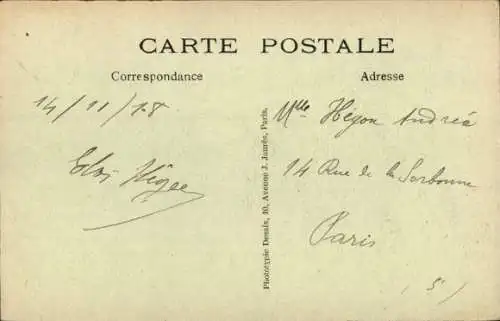 CARTE POSTALE
Correspondance
Adresse
14/11/18
Eloi Hégon
Phototypie Desaix, 30, Avenue J. Jaurès, Paris.
Mlle Hégon Andréa
14 Rue de la Sorbonne
Paris
(5)